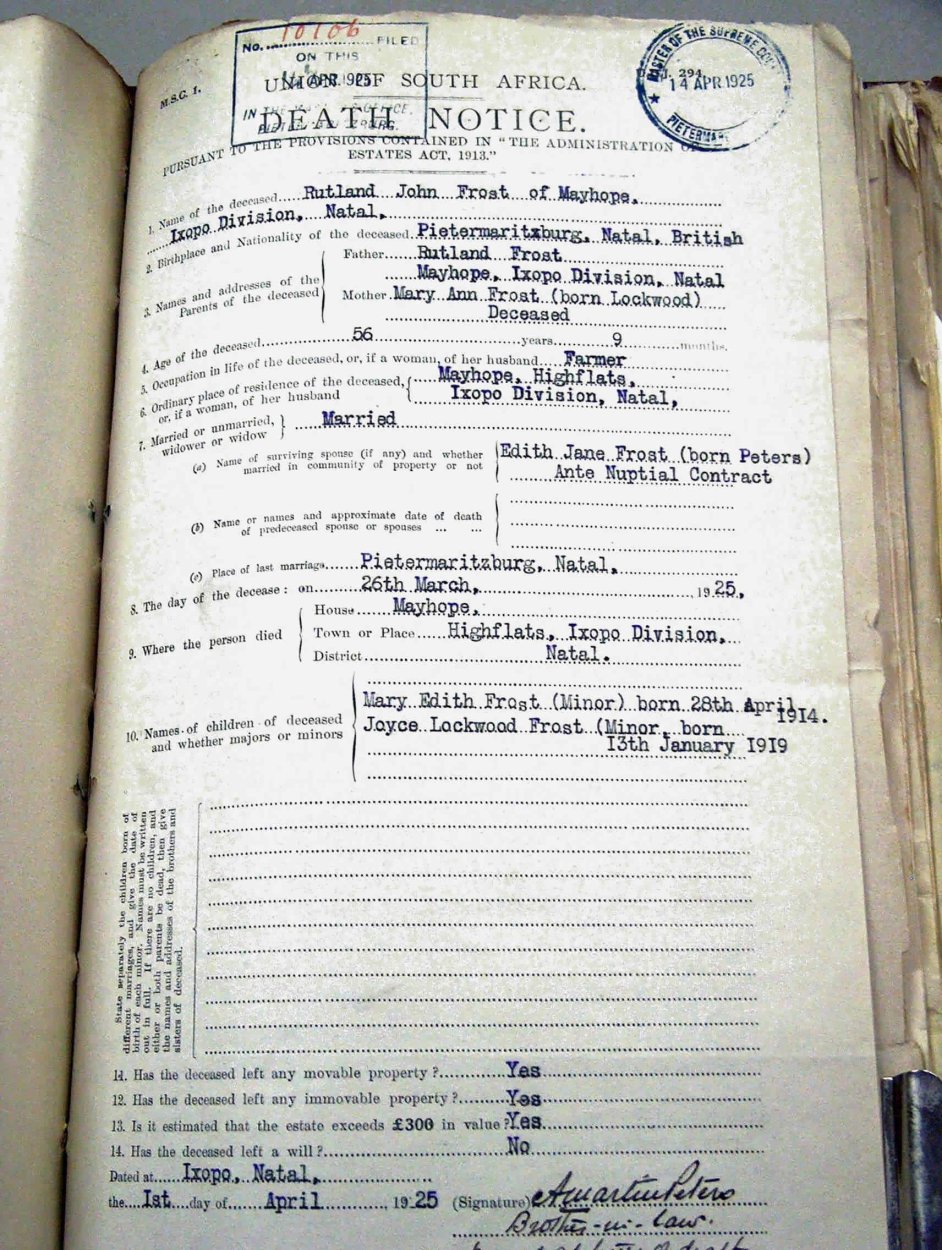 No. 10106 FILED
ON THIS
14 APR.1925
IN THE MASTER'S OFFICE,
PIETERMARITZBURG.
MASTER OF THE SUPREME COURT
14 APR 1925
PIETERMA
M.S.C. 1.
294
UNION OF SOUTH AFRICA.
DEATH NOTICE.
PURSUANT TO THE PROVISIONS CONTAINED IN "THE ADMINISTRATION OF
ESTATES ACT, 1913."
1. Name of the deceased Rutland John Frost of Mayhope,
Ixopo Division, Natal,
2. Birthplace and Nationality of the deceased Pietermaritzburg, Natal, British
3. Names and addresses of the Parents of the deceased
Father Rutland Frost
Mayhope, Ixopo Division, Natal
Mother Mary Ann Frost (born Lockwood)
Deceased
4. Age of the deceased 56 years 9 months.
5. Occupation in life of the deceased, or, if a woman, of her husband Farmer
6. Ordinary place of residence of the deceased, Mayhope, Highflats,
or, if a woman, of her husband Ixopo Division, Natal,
7. Married or unmarried, widower or widow Married
(a) Name of surviving spouse (if any) and whether Edith Jane Frost (born Peters)
married in community of property or not Ante Nuptial Contract
(b) Name or names and approximate date of death
of predeceased spouse or spouses ... ...
(c) Place of last marriage Pietermaritzburg, Natal,
8. The day of the decease: on 26th March, 1925,
9. Where the person died
House Mayhope,
Town or Place Highflats, Ixopo Division,
District Natal.
10. Names of children of deceased and whether majors or minors
Mary Edith Frost (Minor) born 28th April
1914.
Joyce Lockwood Frost (Minor, born
13th January 1919
State separately the children born of
different marriages, and give the date of
birth of each minor. Names must be written
out in full. If there are no children, and
either or both parents be dead, then give
the names and addresses of the brothers and
sisters of deceased.
11. Has the deceased left any movable property? Yes
12. Has the deceased left any immovable property? Yes
13. Is it estimated that the estate exceeds £300 in value? Yes
14. Has the deceased left a will? No
Dated at Ixopo, Natal,
the 1st day of April 1925 (Signature) A Martin Peters
Brother-in-law.